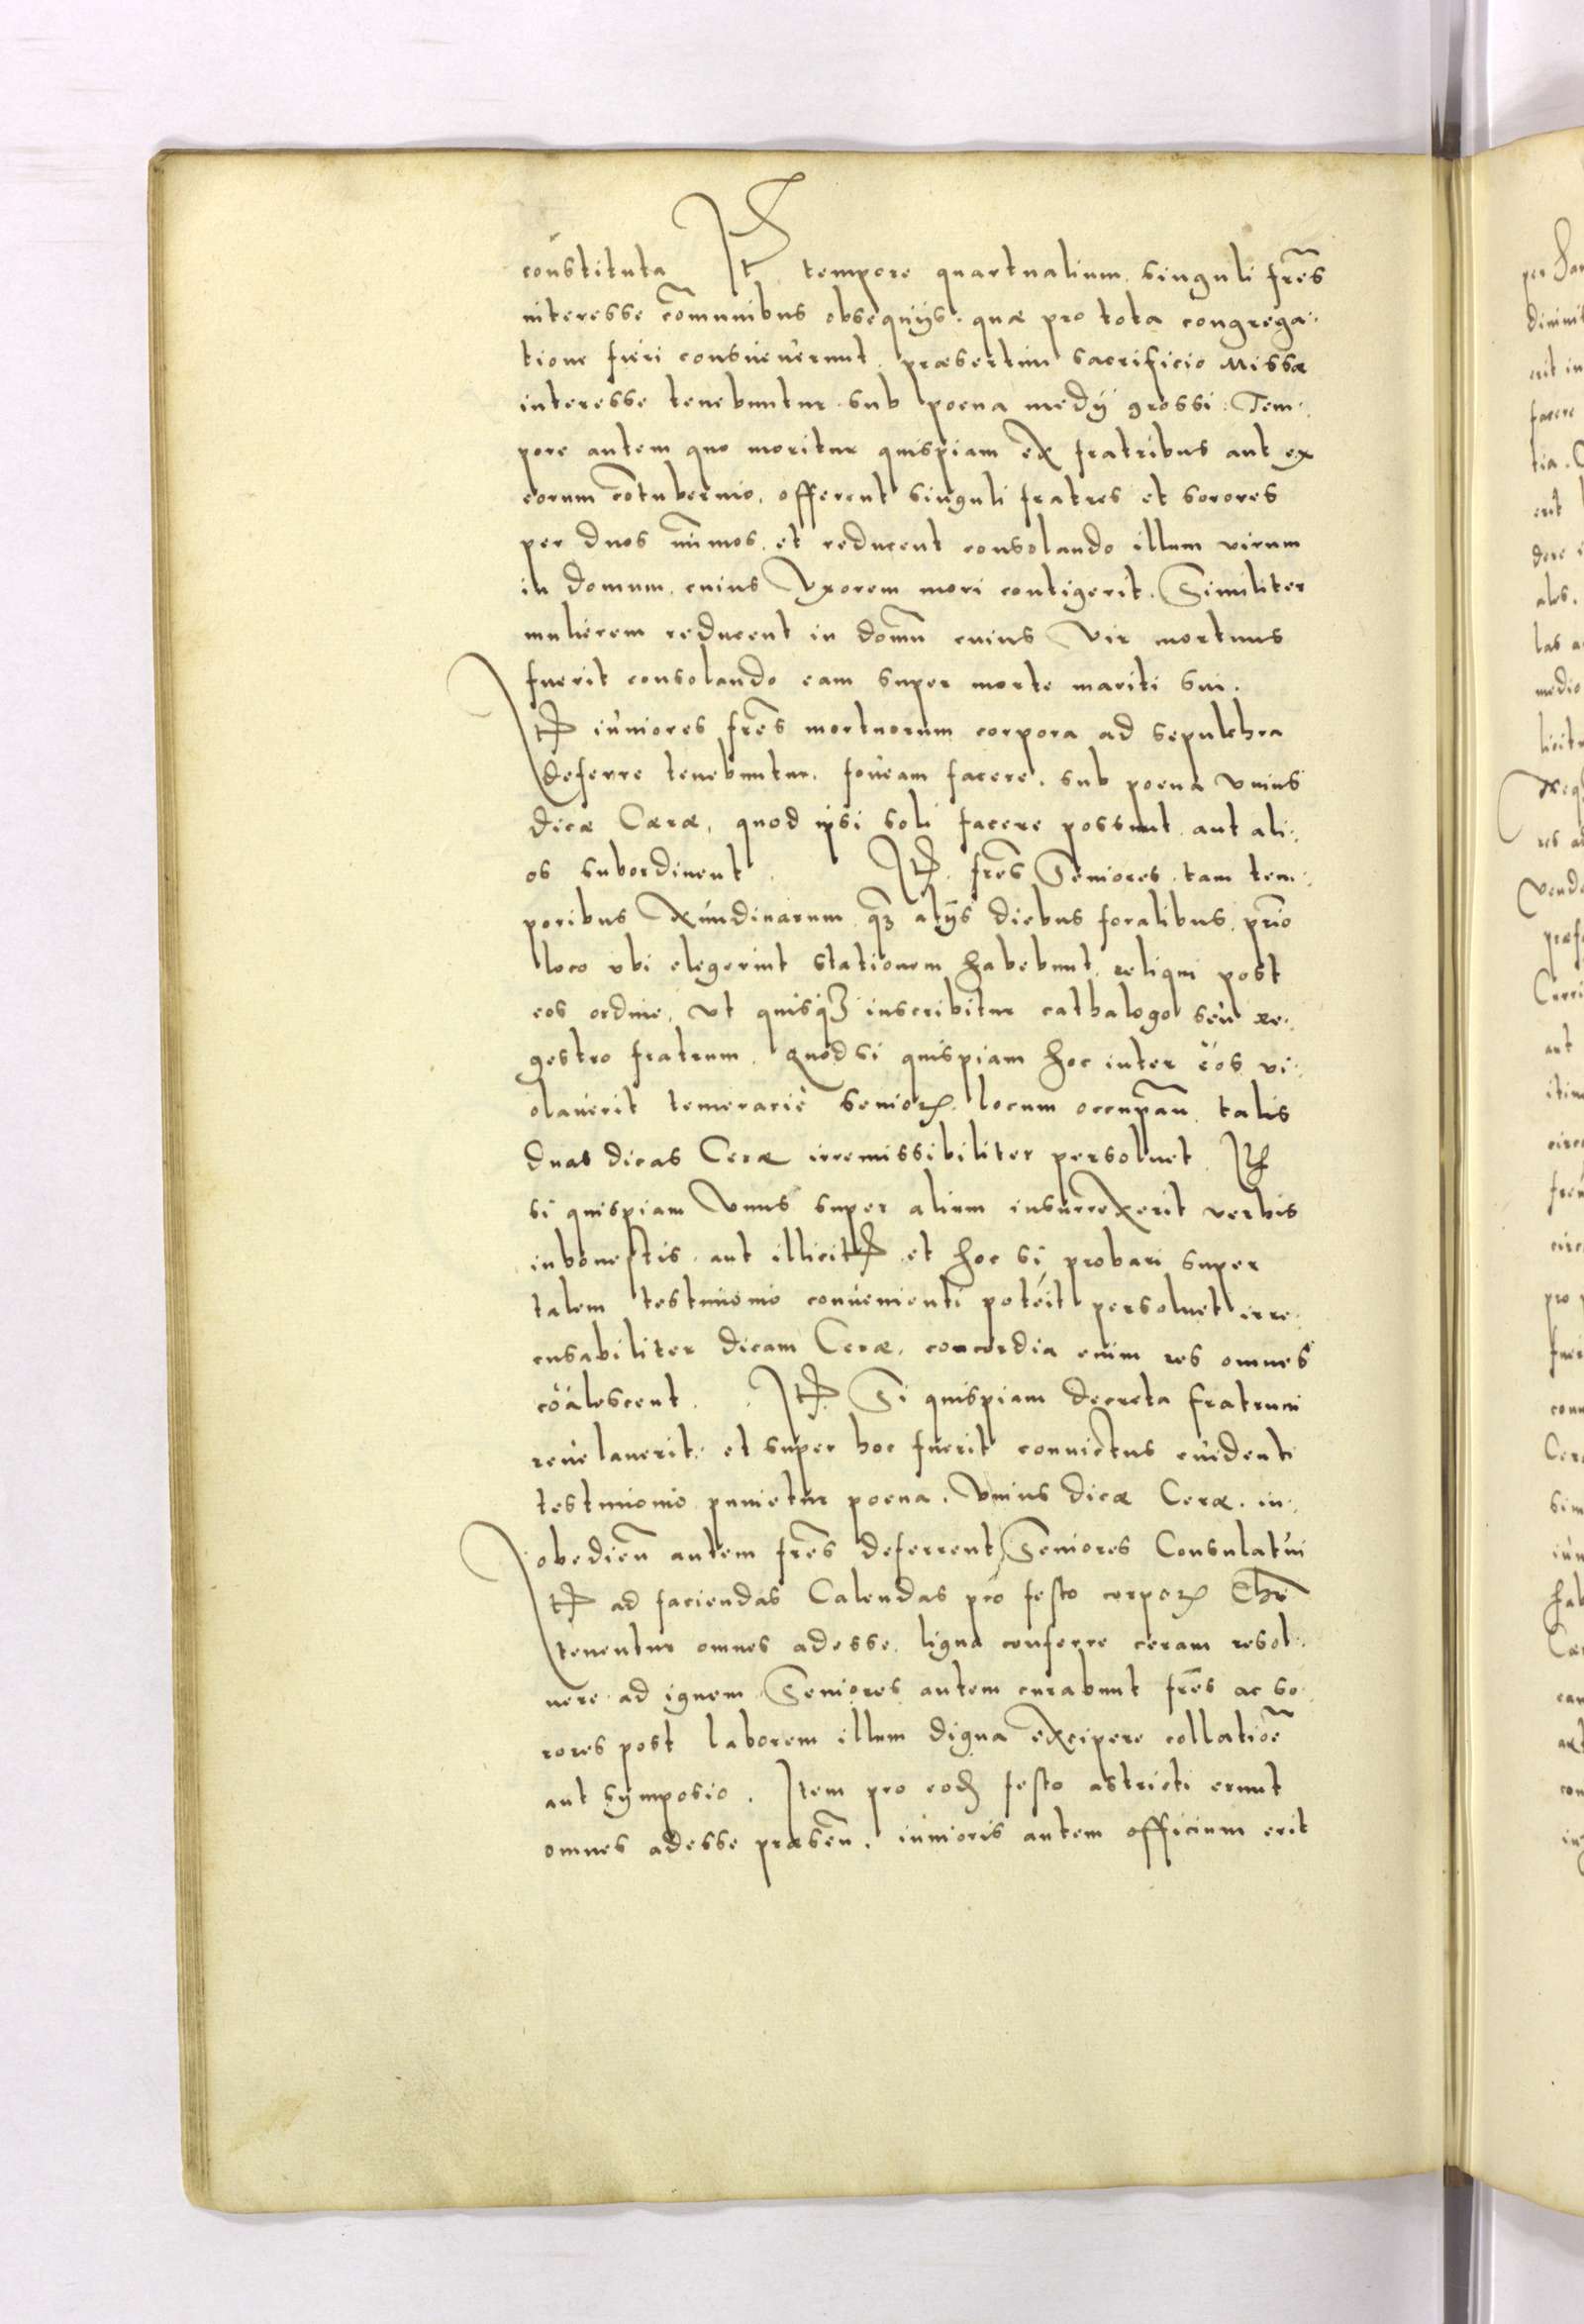 constituta It tempore quartualium singuli fre͠s
interesse co͠munibus obsequijs. quæ pro tota congrega-
tione fieri consueuerunt. præsertim sacrificio Missæ
interesse tenebuntur sub poena medij grossi. Tem-
pore autem quo moritur quispiam ex fratribus aut ex
eorum co͠tubernio, offerent singuli fratres et sorores
per duos nu͠mos. et reducent consolando illum virum
in domum. cuius Vxorem mori contigerit. Similiter
mulierem reducent in domu͠ cuius Vir mortuus
fuerit consolando eam super morte mariti sui.
It iuniores fre͠s mortuorum corpora ad sepulchra
deferre tenebuntur. foueam facere. sub poena vnius
dicæ Cæræ, quod ipsi soli facere possunt. aut ali-
os subordinent. It. fre͠s Seniores. tam tem-
poribus Nundinarum qꝫ alijs diebus foralibus. prio͠
loco vbi elegerint stationem habebunt. reliqui post
eos ordine, vt quisqꝫ inscribitur cathalogo seu re-
gestro fratrum. Quod si quispiam hoc inter eos vi-
olauerit temerariè senioꝝ locum occupan͠. talis
duas dicas Ceræ irremissibiliter persoluet. It
si quispiam Vnus super alium insurrexerit verbis
inhonestis. aut illicit et hoc si probari super
talem testimonio conuenienti poteit persoluet irre-
cusabiliter dicam Ceræ. concordia enim res omnes
coalescent. It. Si quispiam decreta fratrum
reuelauerit. et super hoc fuerit conuictus euidenti
testimonio punietur poena. Vnius dicæ Ceræ. in-
obedien͠ autem fre͠s deferrent Seniores Consulatui
It ad faciendas Calendas pro festo corpoꝝ Chri͠
tenentur omnes adesse. ligna conferre ceram resol-
uere ad ignem. Seniores autem curabunt fre͠s ac so-
rores post laborem illum digna excipere collatioe͠
aut symposio. Item pro eod͠ festo astricti erunt
omnes adesse præsen͠. iunioris autem officium erit